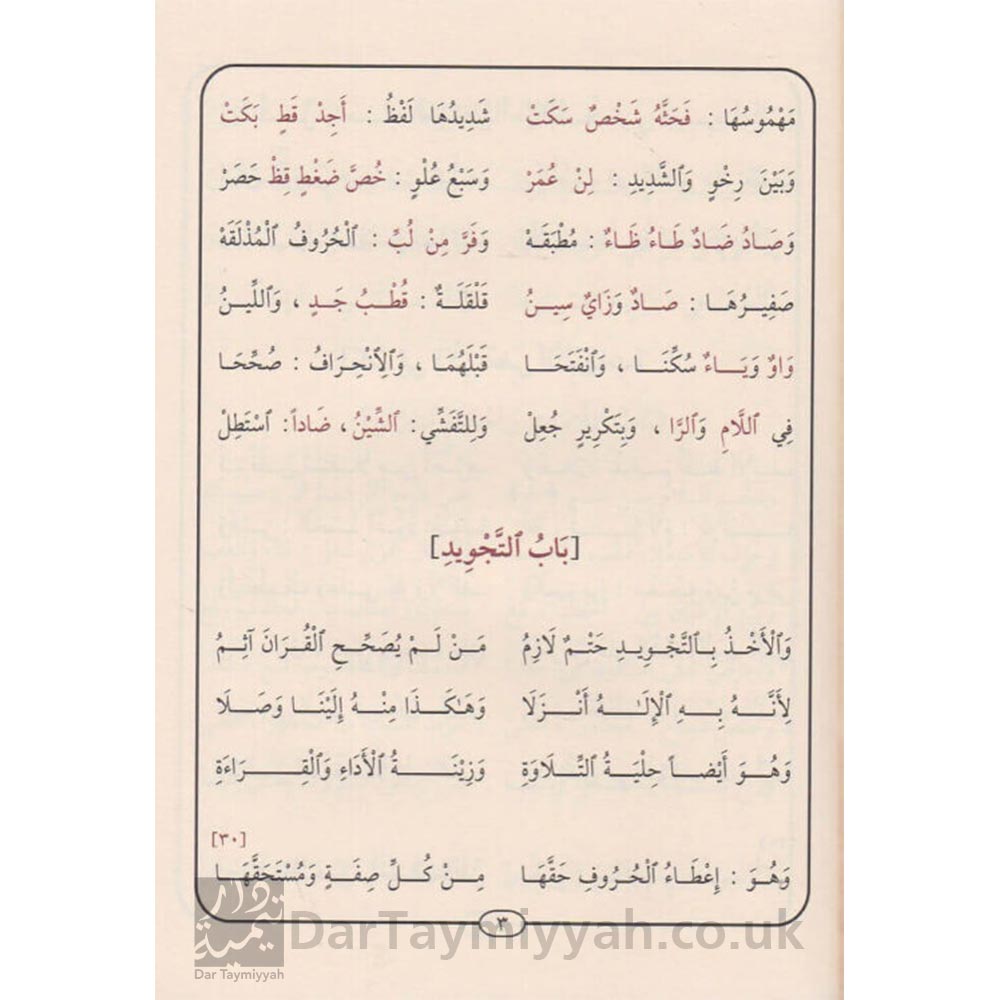 مَهْمُوسُهَا : فَحَثَّهُ شَخْصٌ سَكَتْ شَدِيدُهَا لَفْظُ : أَجِدْ قَطٍ بَكَتْ
وَبَيْنَ رِخْوٍ وَٱلشَّدِيدِ : لِنْ عُمَرْ وَسَبْعُ عُلْوٍ : خُصَّ ضَغْطٍ قِظْ حَصَرْ
وَصَادُ ضَادٌ طَاءُ ظَاءٌ : مُطْبَقَهْ وَفَرَّ مِنْ لُبِّ : ٱلْحُرُوفُ ٱلْمُذْلَقَهْ
صَفِيرُهَا : صَادٌ وَزَايٌ سِينُ قَلْقَلَةٌ : قُطْبُ جَدٍ ، وَٱللِّينُ
وَاوٌ وَيَاءٌ سُكِّنَا ، وَٱنْفَتَحَا قَبْلَهُمَا ، وَٱلِٱنْحِرَافُ : صُحِّحَا
فِي ٱللَّامِ وَٱلرَّا ، وَبِتَكْرِيرٍ جُعِلْ وَلِلتَّفَشِّي: ٱلشِّيْنُ، ضَاداً: ٱسْتَطِلْ
[بَابُ ٱلتَّجْوِيدِ]
وَٱلْأَخْذُ بِٱلتَّجْوِيدِ حَتْمٌ لَازِمُ مَنْ لَمْ يُصَحِّحِ ٱلْقُرَانَ آثِمُ
لِأَنَّهُ بِهِ ٱلْإِلَـٰهُ أَنْزَلَا وَهَـٰكَذَا مِنْهُ إِلَيْنَا وَصَلَا
وَهُوَ أَيْضاً حِلْيَةُ ٱلتِّلَاوَةِ وَزِيْنَةُ ٱلْأَدَاءِ وَٱلْقِرَاءَةِ
[٣٠]
وَهُوَ : إِعْطَاءُ ٱلْحُرُوفِ حَقَّهَا مِنْ كُلِّ صِفَةٍ وَمُسْتَحَقَّهَا
٣
دار تيمية
Dar Taymiyyah
DarTaymiyyah.co.uk